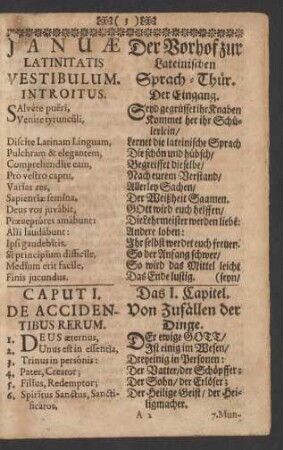 ( 3 )
JANUÆ
LATINITATIS
VESTIBULUM.
INTROITUS.
SAlvéte puëri,
Venite tyruncüli,
Discite Latinam Linguam,
Pulchram & elegantem,
Comprehendite eam,
Pro vestro captu,
Varias res,
Sapientiæ semina,
Deus vos juvâbit,
Præceptôres amâbunt:
Alii laudâbunt:
Ipsi gaudebitis.
Si principium difficile,
Medium erit facile,
Finis jucundus.
CAPUT I.
DE ACCIDEN-
TIBUS RERUM.
1. DEUS æternus,
2. Unus est in essentia,
3. Trinus in personis:
4. Pater, Creator;
5. Filius, Redemptor;
6. Spiritus Sanctus, Sancti-
ficâtor.
Der Vorhof zur
Lateinischen
Sprach-Thür.
Der Eingang.
Seyd gegrüsset ihr Knaben
Kommet her ihr Schü-
lerlein/
Lernet die lateinische Sprach
Die schön und hübsch/
Begreiffet dieselbe/
Nach eurem Verstand/
Allerley Sachen/
Der Weißheit Saamen.
GOtt wird euch helffen/
Die Lehrmeister werden liebē:
Andere loben:
Ihr selbst werdet euch freuen.
So der Anfang schwer/
So wird das Mittel leicht
Das Ende lustig. (seyn/
Das I. Capitel.
Von Zufällen der
Dinge.
DEr ewige GOTT/
Ist einig im Wesen/
Dreyeinig in Personen:
Der Vatter/der Schöpffer:
Der Sohn/ der Erlöser:
Der Heilige Geist/ der Hei-
ligmacher.
A 2
7. Mun-